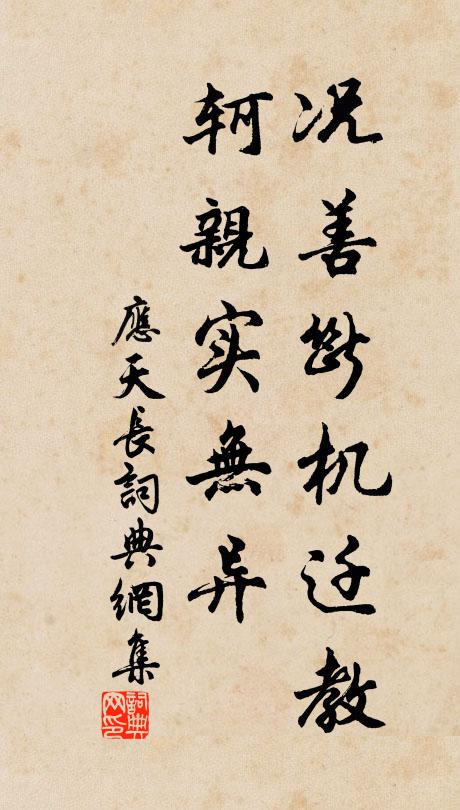 况善断机迁教
轲親实無异
應天長詞典網集
詞典网印